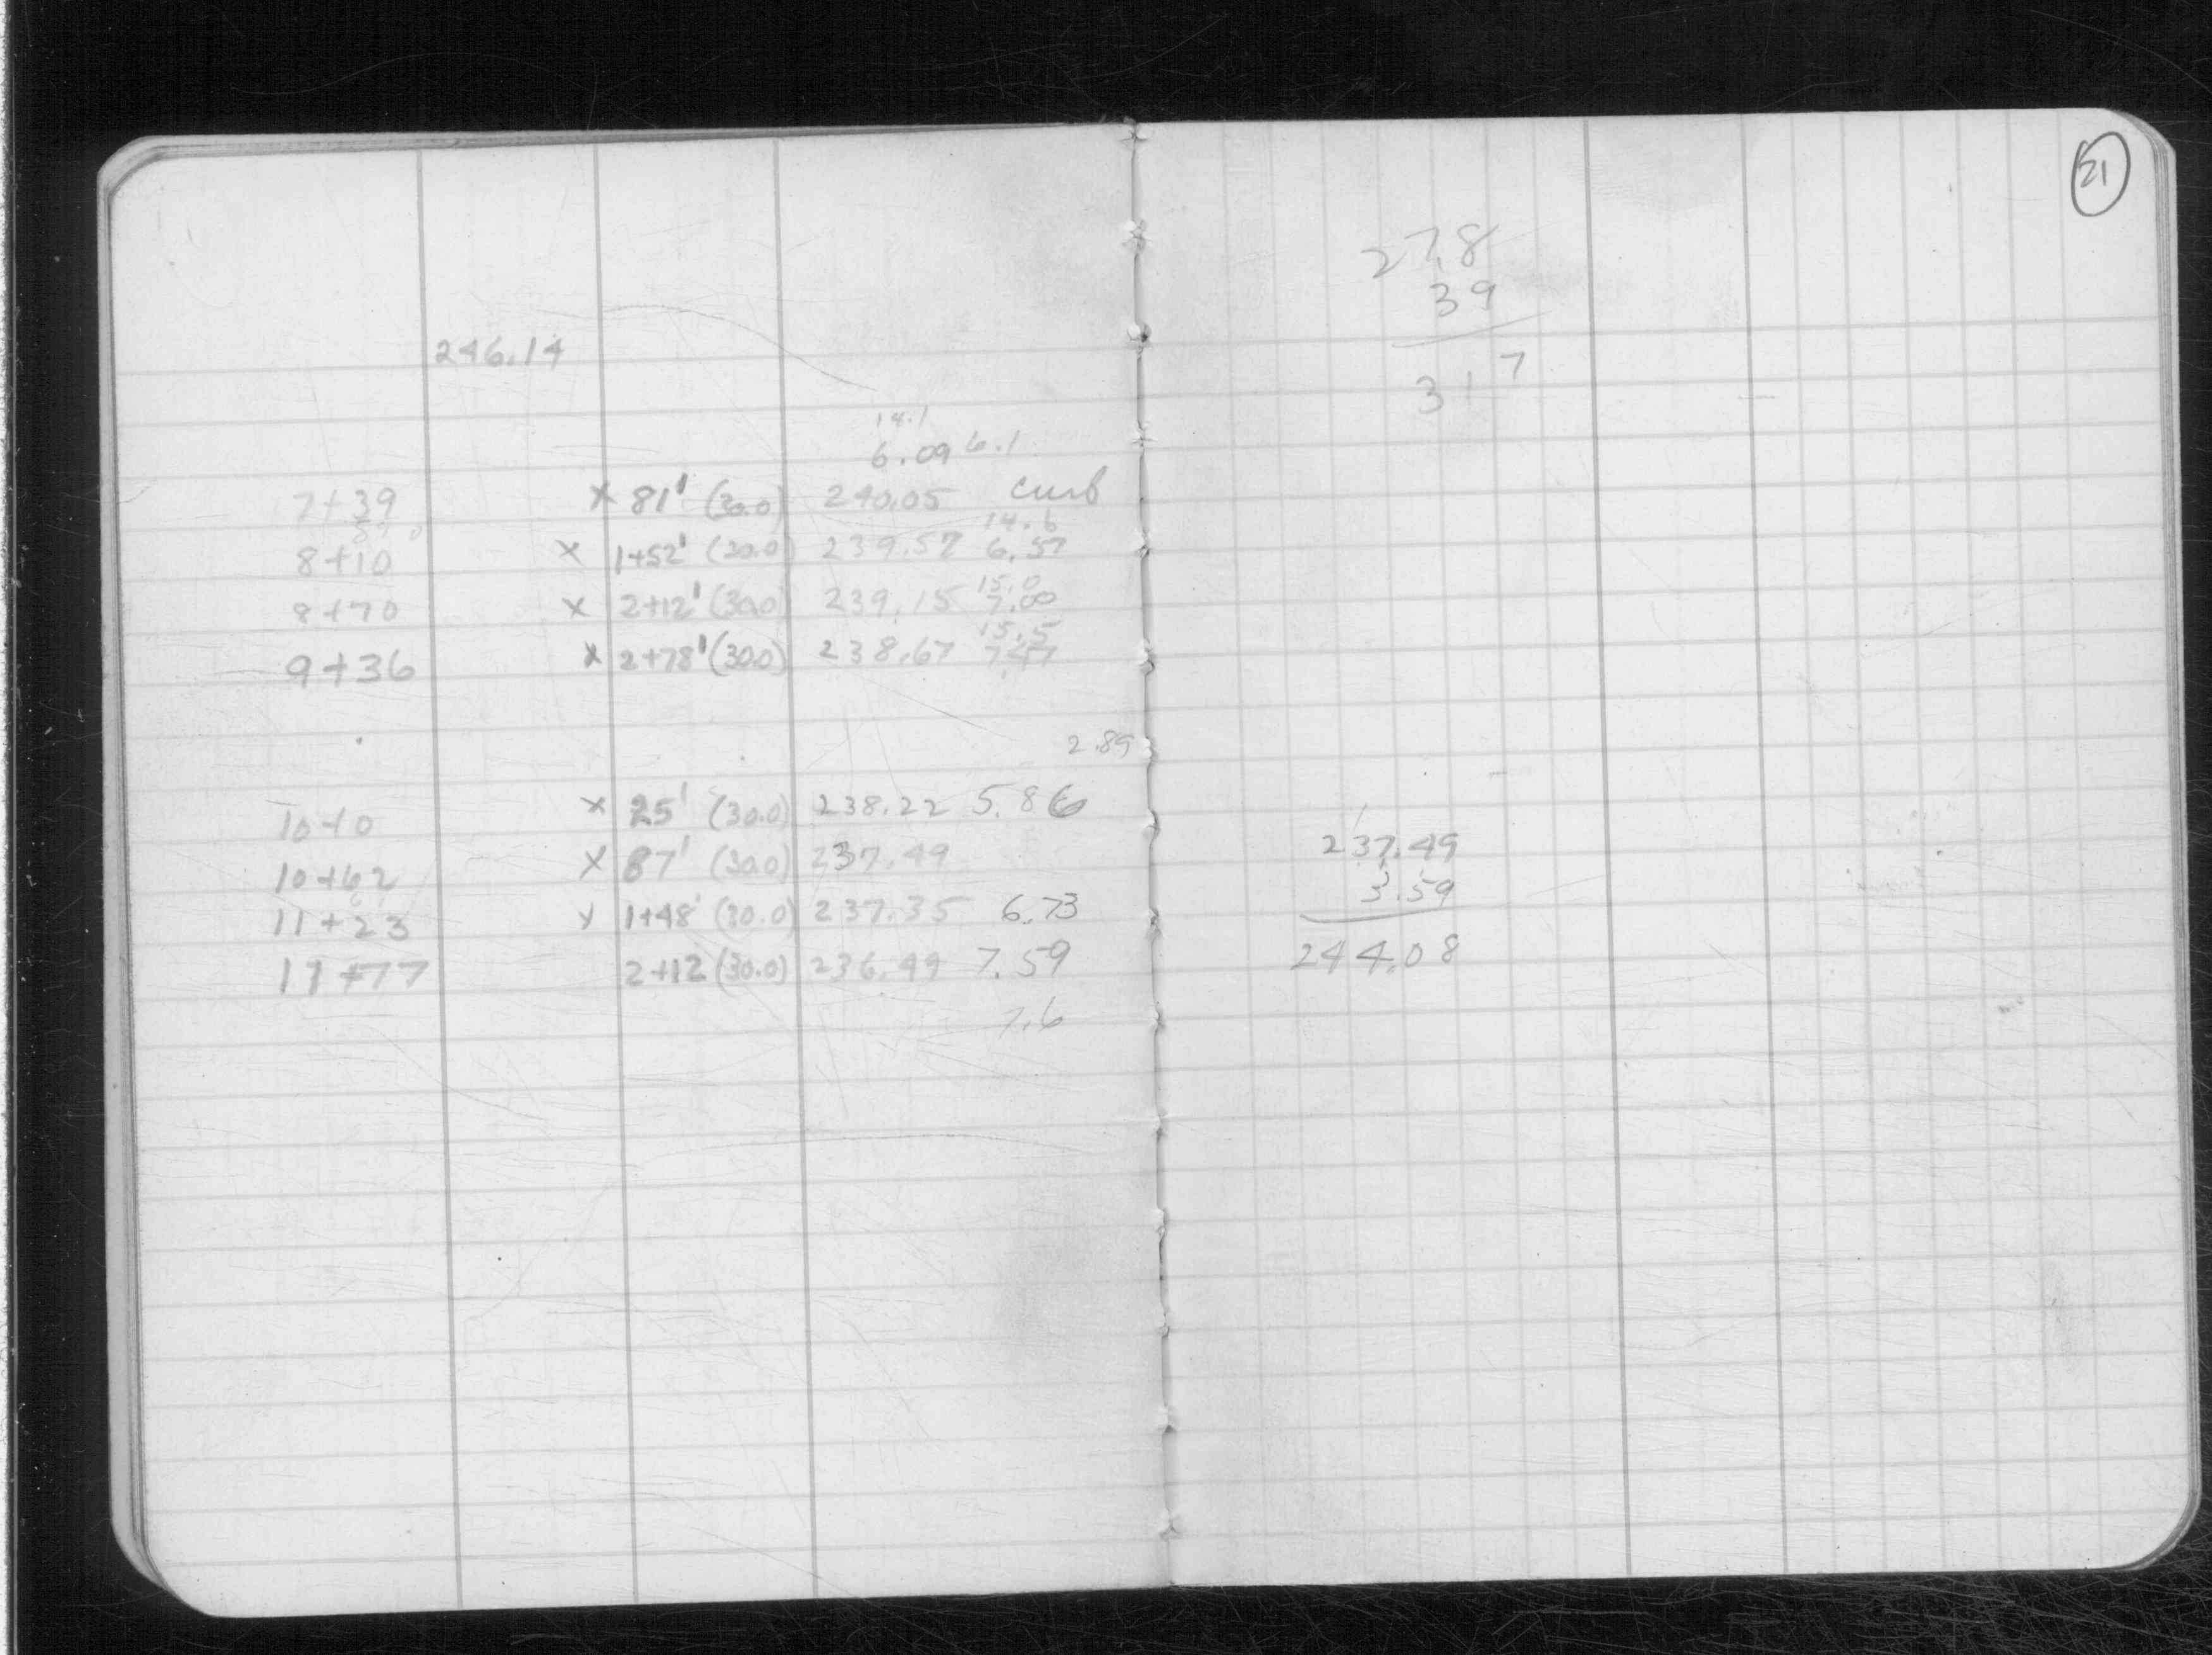 246.14
14.1
6.09 6.1
7+39 x 81' (30.0) 240.05 curb
14.6
8+10 x 1+52' (30.0) 239.57 6.57
15.0
8+70 x 2+12' (30.0) 239.15 7.00
15.5
9+36 x 2+78' (30.0) 238.67 7.47
2.89
10+0 x 25' (30.0) 238.22 5.86
10+62 x 87' (30.0) 237.49
11+23 x 1+48' (30.0) 237.35 6.73
11+77 2+12 (30.0) 236.49 7.59
7.6
21
278
39
317
237.49
3.59
244.08